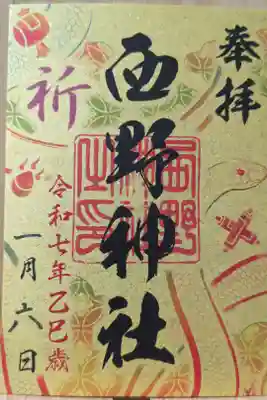 奉拝
西野神社
祈
令和七年乙巳歳
一月六日
西野神社之印